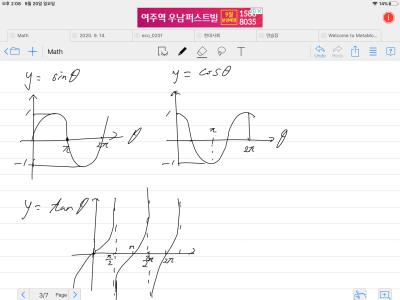 오후 2:08 9월 20일 일요일
14%
여주역 우남퍼스트빌
1588
8035
Math
2020. 9. 14.
eco_0201
현대사회
연습장
Welcome to MetaMo...
Math
Undo
Redo
y = sinθ
y = cosθ
1
-1
π
2π
θ
1
-1
π
2π
θ
y = tanθ
π/2
π
2π
3/7 Page